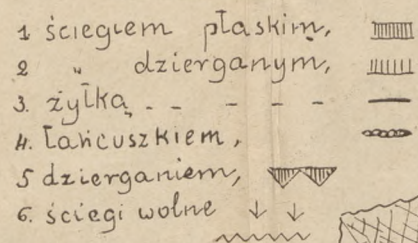 1 ściegiem płaskim,
2 " dzierganym,
3. żyłką - - - - - -
4. łańcuszkiem,
5 dzierganiem,
6. ściegi wolne